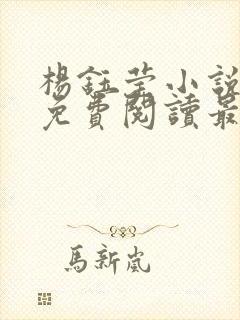 楊鈺莹小說
免費閱讀最
馬新嵐